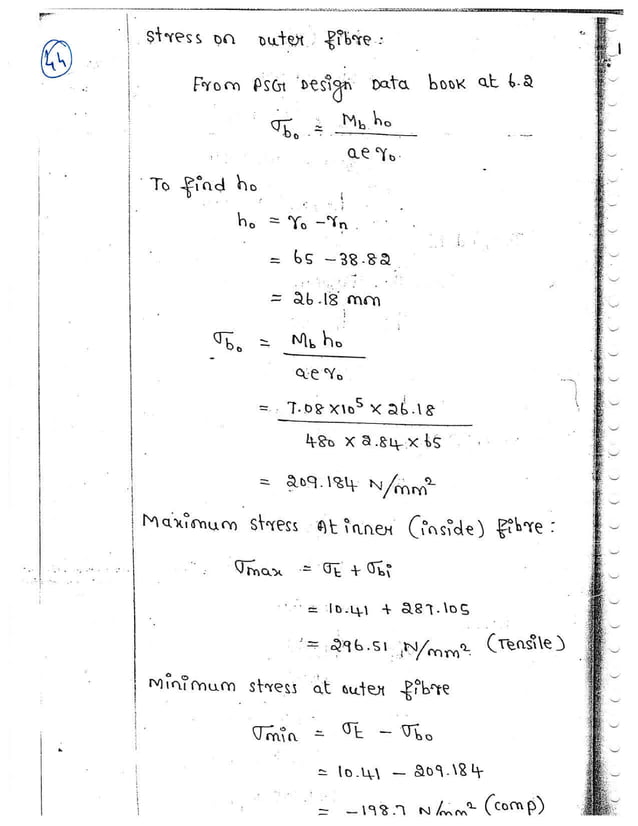 44
Stress on outer fibre:
From PSG Design Data book at 6.2
σb₀ = Mb h₀
ae r₀
To find h₀
h₀ = r₀ - rn
= 65 - 38.82
= 26.18 mm
σb₀ = Mb h₀
ae r₀
= 7.08 x10⁵ x 26.18
480 x 2.84 x 65
= 209.184 N/mm²
Maximum stress At inner (inside) fibre:
σmax = σt + σbi
= 10.41 + 287.105
= 296.51 N/mm² (Tensile)
Minimum stress at outer fibre
σmin = σt - σb₀
= 10.41 - 209.184
= -198.7 N/mm² (comp)